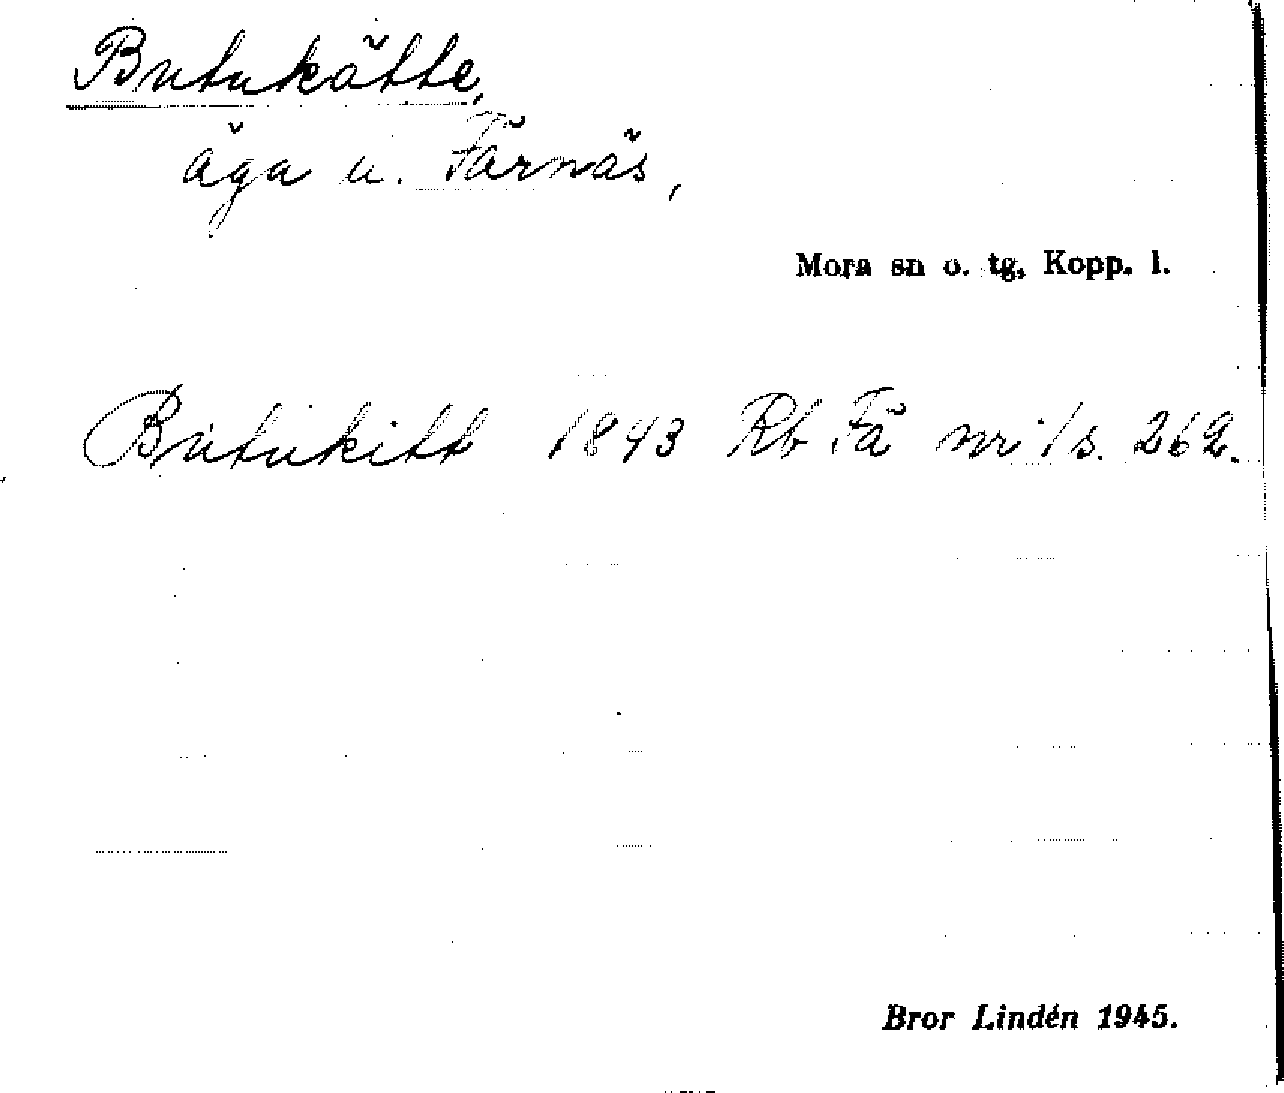 Butukätte,
äga u. Färnäs,
Mora sn o. tg, Kopp. l.
Butukitt 1843 Rb Fä nr 1 s. 262.
Bror Lindén 1945.